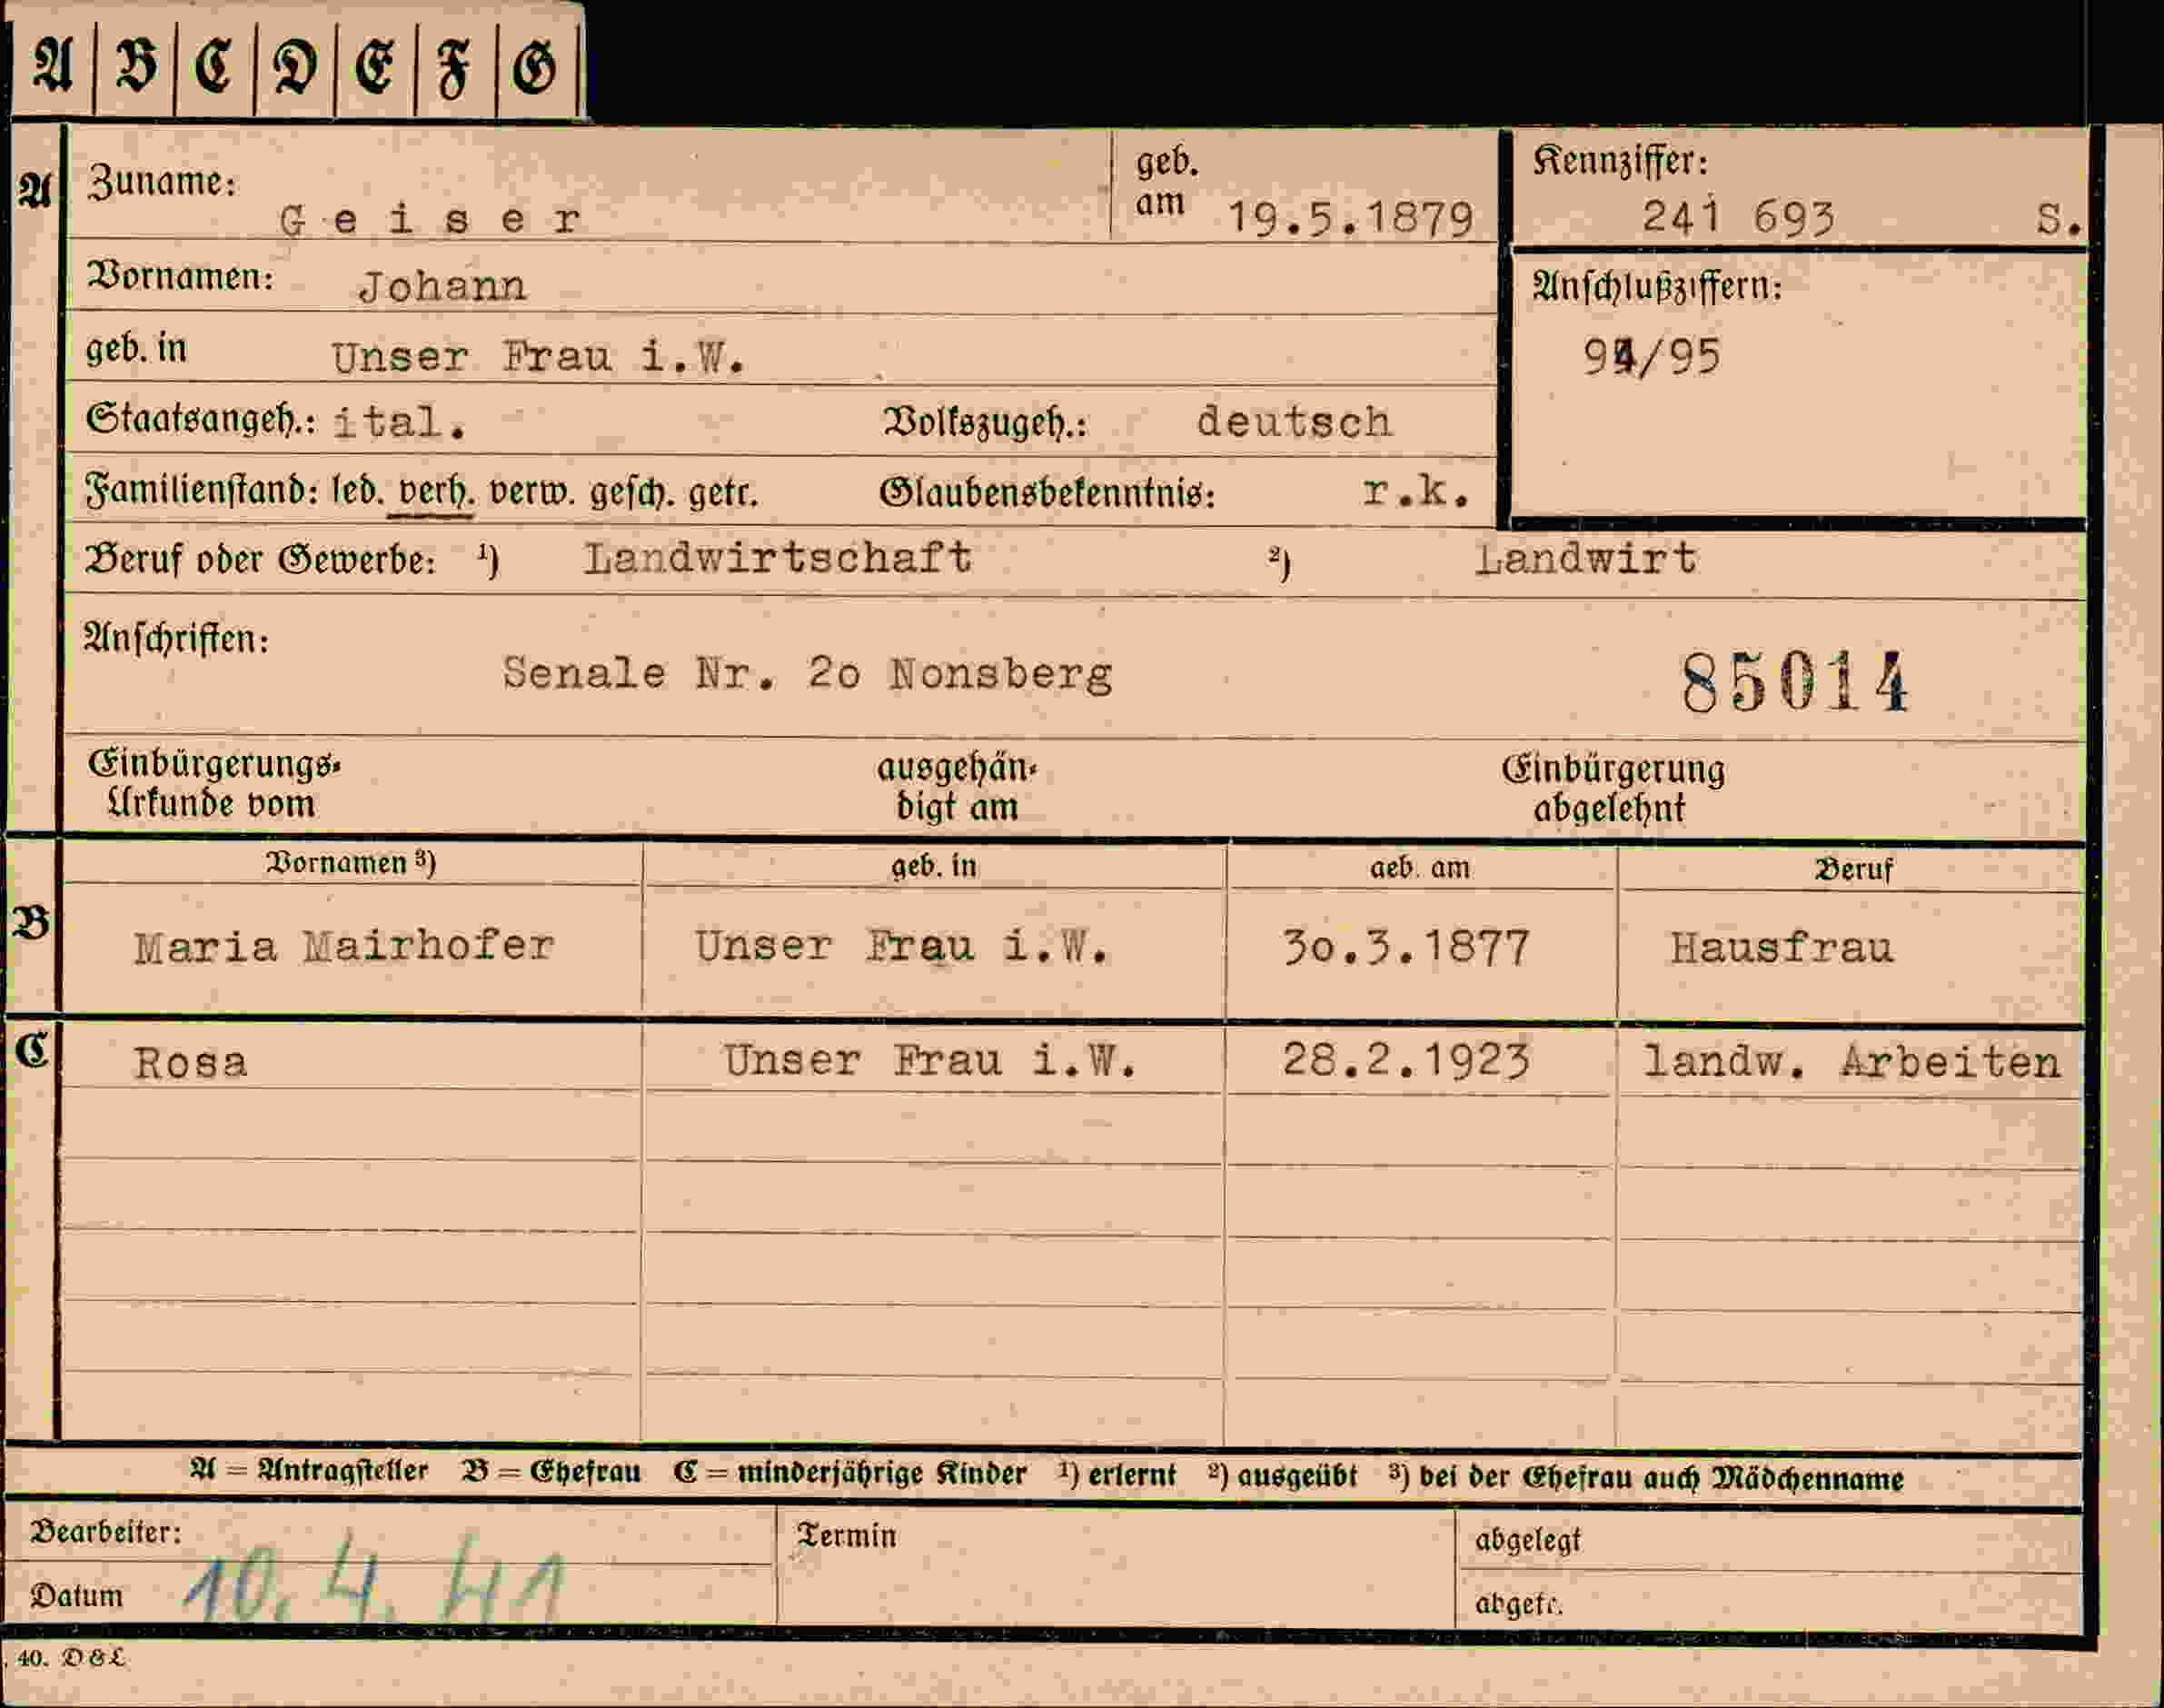 A B C D E F G
A Zuname: Geiser geb. am 19.5.1879 Kennziffer: 241 693 S.
Vornamen: Johann Anschlußziffern:
geb. in Unser Frau i.W. 94/95
Staatsangeh.: ital. Volkszugeh.: deutsch
Familienstand: led. verh. verw. gesch. getr. Glaubensbekenntnis: r.k.
Beruf oder Gewerbe: ¹) Landwirtschaft ²) Landwirt
Anschriften:
Senale Nr. 2o Nonsberg 85014
Einbürgerungs- ausgehän- Einbürgerung
Urkunde vom digt am abgelehnt
Vornamen ³) geb. in geb. am Beruf
B Maria Mairhofer Unser Frau i.W. 3o.3.1877 Hausfrau
C Rosa Unser Frau i.W. 28.2.1923 landw. Arbeiten
A = Antragsteller B = Ehefrau C = minderjährige Kinder ¹) erlernt ²) ausgeübt ³) bei der Ehefrau auch Mädchenname
Bearbeiter: Termin abgelegt
Datum 10.4.41 abgetr.
40. D&L